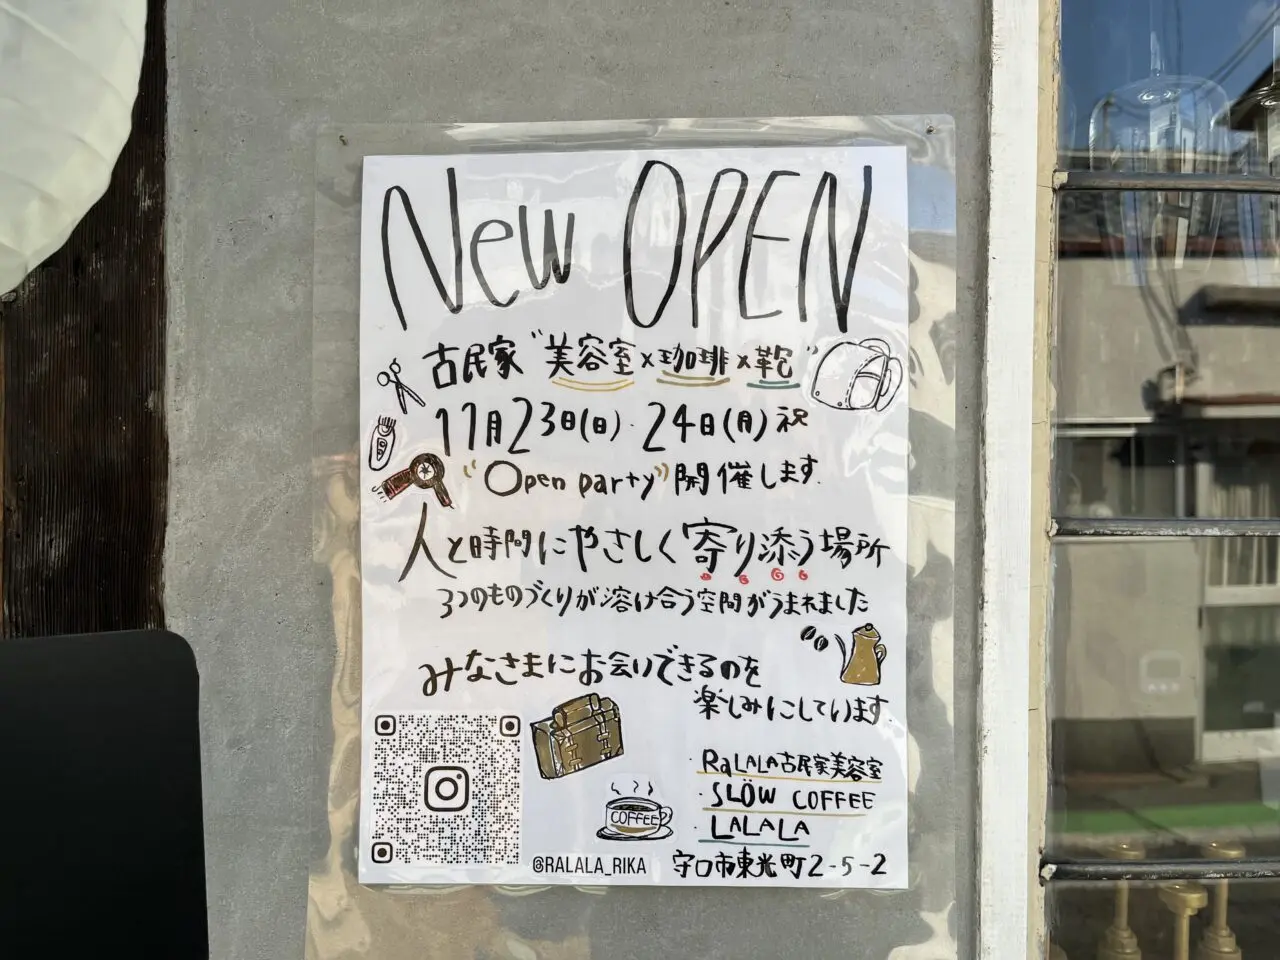 New OPEN
古民家"美容室×珈琲×鞄"
11月23日(日)・24日(月)祝
"Open party"開催します.
人と時間にやさしく寄り添う場所
3つのものづくりが溶け合う空間がうまれました
みなさまにお会いできるのを
楽しみにしています.
・RaLALA古民家美容室
・SLÖW COFFEE
・LALALA
COFFEE
@RALALA_RIKA
守口市東光町2-5-2